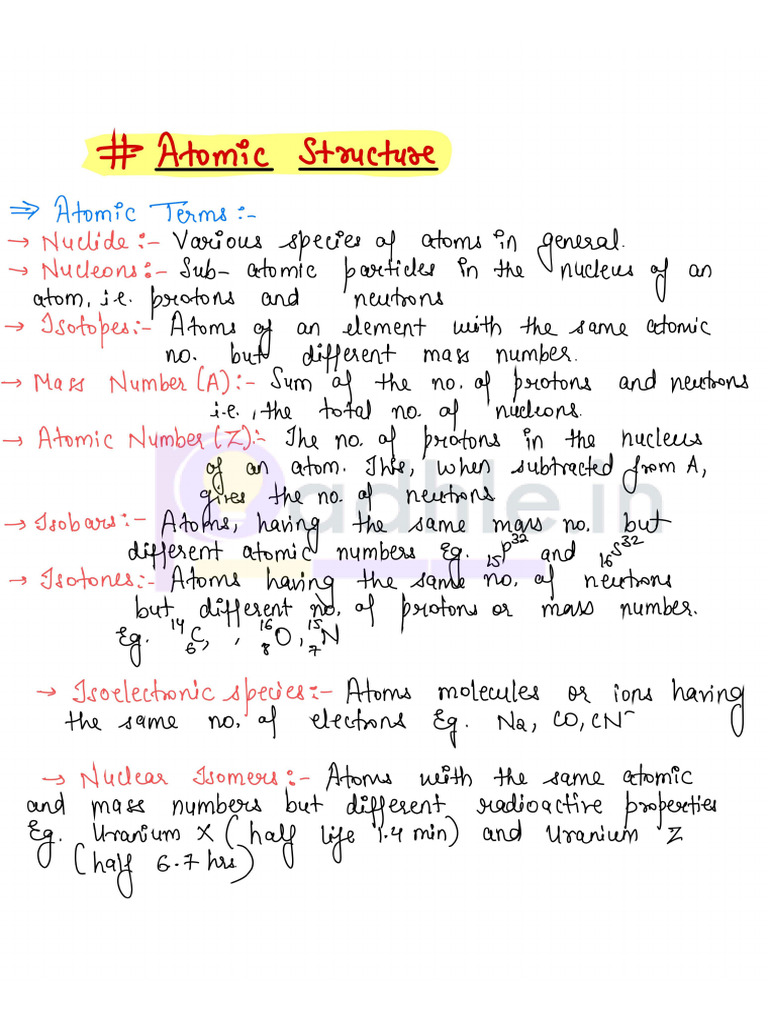 # Atomic Structure
⇒ Atomic Terms :-
→ Nuclide :- Various species of atoms in general.
→ Nucleons :- Sub-atomic particles in the nucleus of an
atom, i.e. protons and neutrons
→ Isotopes :- Atoms of an element with the same atomic
no. but different mass number.
→ Mass Number (A) :- Sum of the no. of protons and neutrons
i.e., the total no. of nucleons.
→ Atomic Number (Z) :- The no. of protons in the nucleus
of an atom. This, when subtracted from A,
gives the no. of neutrons
adhle.in
→ Isobars :- Atoms, having the same mass no. but
different atomic numbers Eg. ₁₅P³² and ₁₆S³²
→ Isotones :- Atoms having the same no. of neutrons
but different no. of protons or mass number.
Eg. ¹⁴₆C, , ¹⁶₈O, ¹⁵₇N
→ Isoelectronic species :- Atoms molecules or ions having
the same no. of electrons Eg. Na, CO, CN⁻
→ Nuclear Isomers :- Atoms with the same atomic
and mass numbers but different radioactive properties
Eg. Uranium X (half life 1.4 min) and Uranium Z
(half 6.7 hrs)